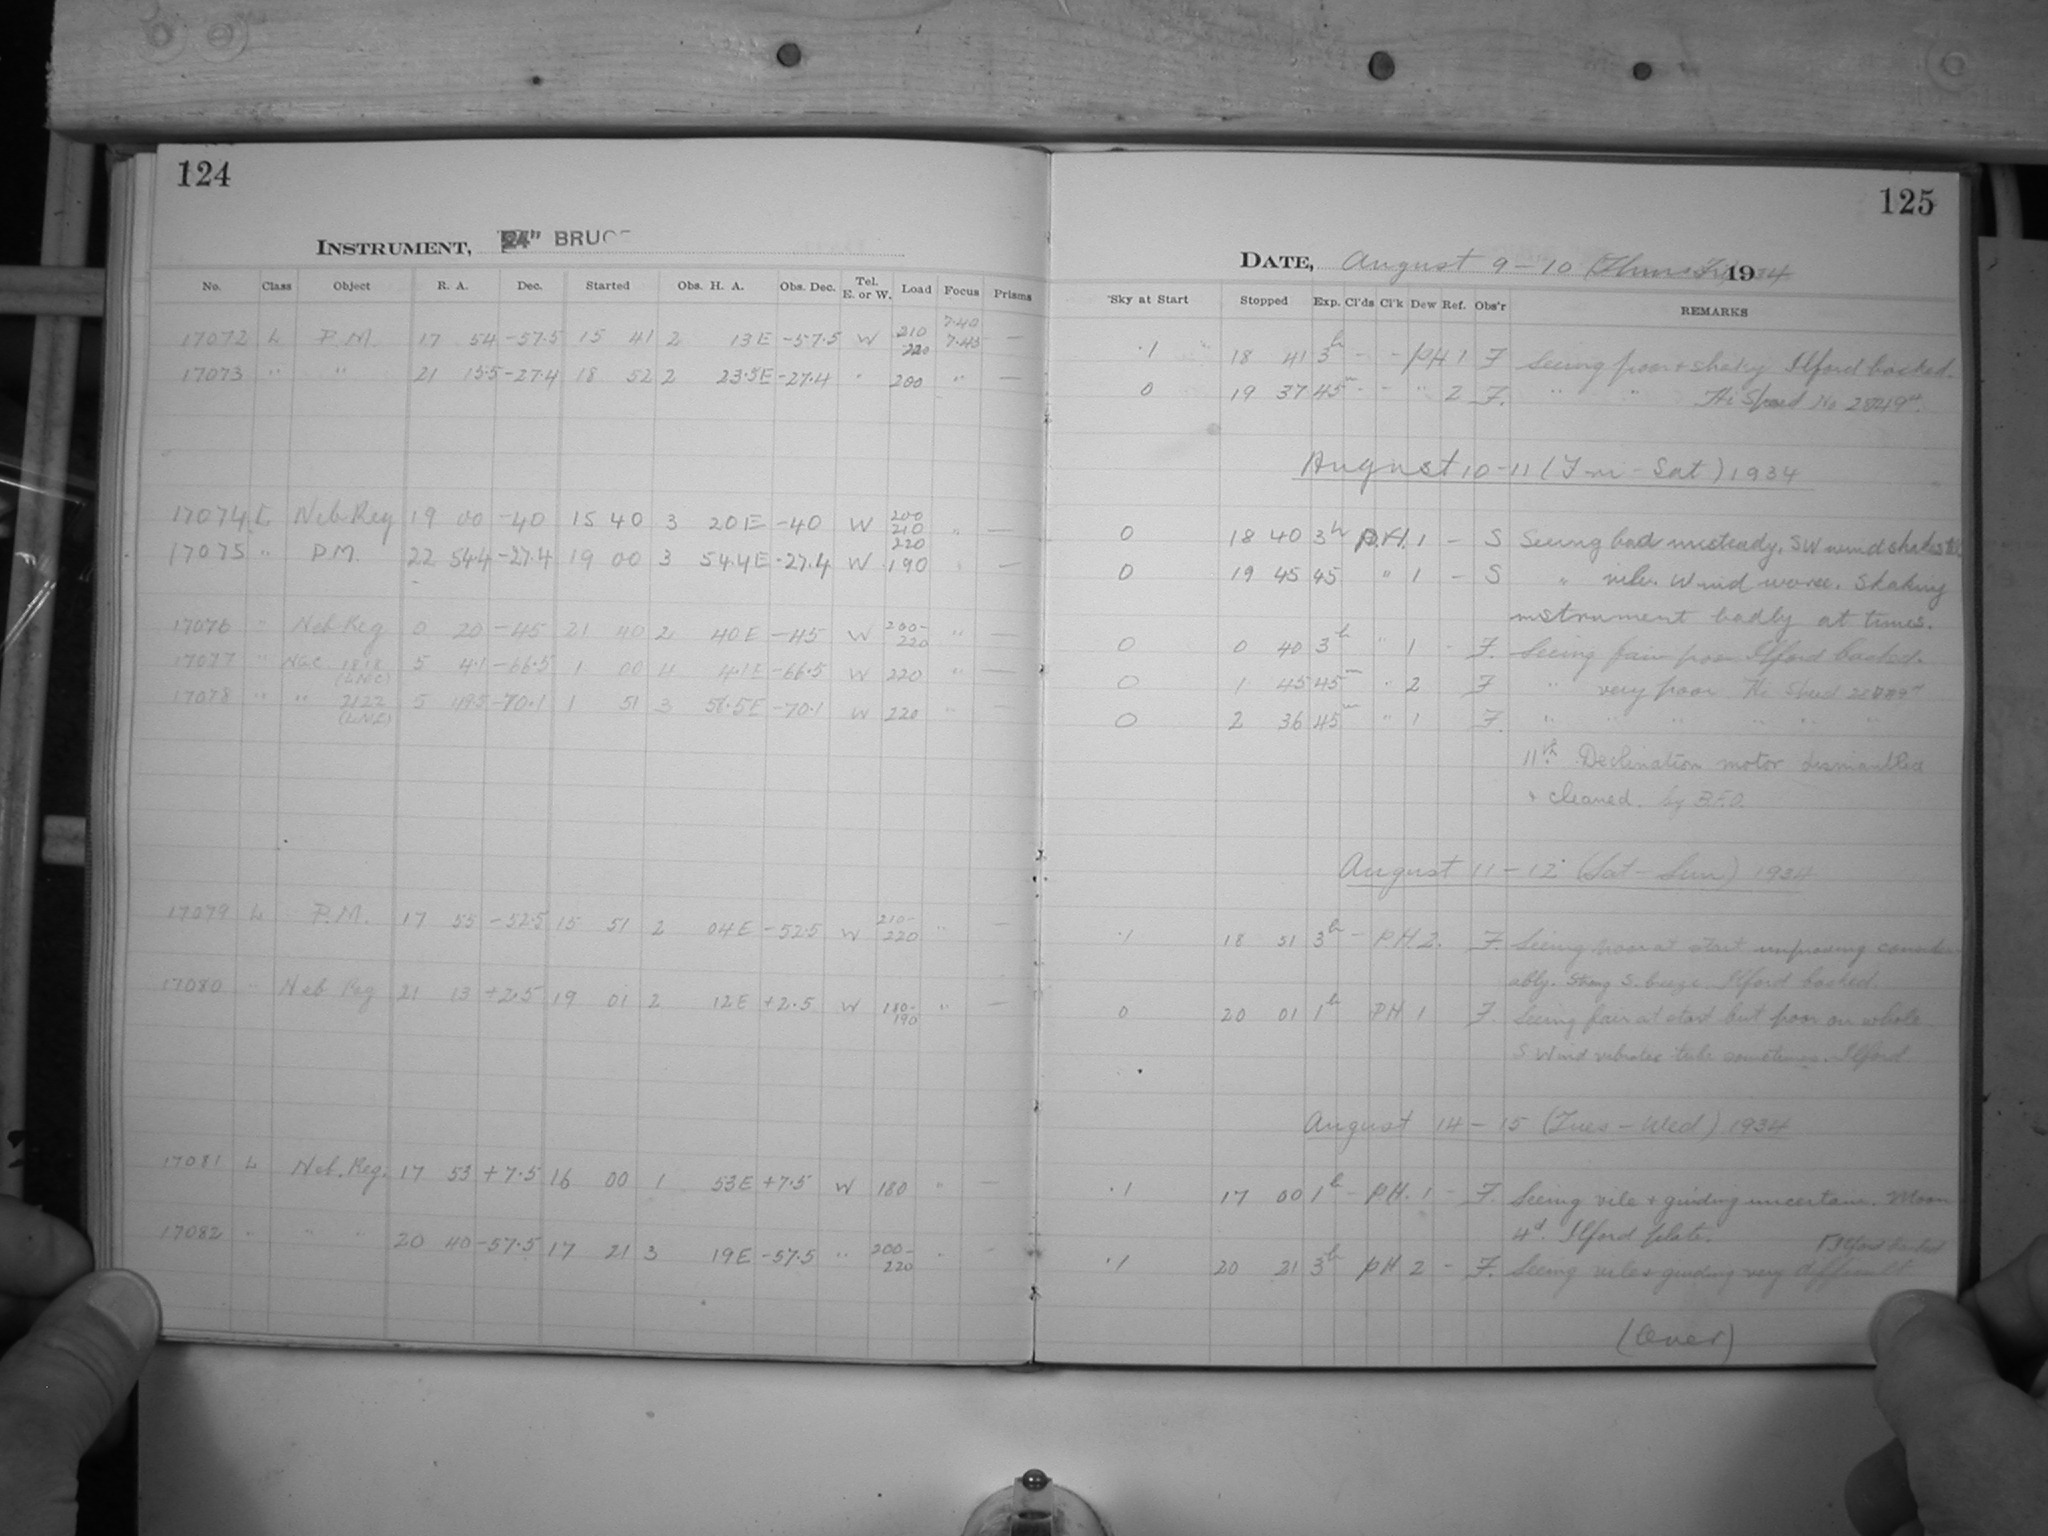 124
INSTRUMENT, 24" BRUCE
No. Class Object R. A. Dec. Started Obs. H. A. Obs. Dec. Tel. E. or W. Load Focus Prisms
17072 L P.M. 17 54 -57.5 15 41 2 13E -57.5 W 210 220 7.40 7.43 —
17073 " " 21 15.5 -27.4 18 52 2 23.5E -27.4 " 200 " —
17074 L Neb Reg 19 00 -40 15 40 3 20E -40 W 200 210 220 " —
17075 " P.M. 22 54.4 -27.4 19 00 3 54.4E -27.4 W 190 " —
17076 " Neb Reg 0 20 -45 21 40 2 40E -45 W 200- 220 " —
17077 " NGC 1818 (LMC) 5 4.1 -66.5 1 00 4 4.1E -66.5 W 220 " —
17078 " " 2122 (LMC) 5 49.5 -70.1 1 51 3 58.5E -70.1 W 220 " —
17079 L P.M. 17 55 -52.5 15 51 2 04E -52.5 W 210- 220 "
17080 " Neb Reg 21 13 +2.5 19 01 2 12E +2.5 W 180- 190 " —
17081 L Neb. Reg. 17 53 +7.5 16 00 1 53E +7.5 W 180 " —
17082 " " " 20 40 -57.5 17 21 3 19E -57.5 " 200- 220 " —
125
DATE, August 9-10 (Thurs-Fri) 1934
Sky at Start Stopped Exp. Cl'ds Cl'k Dew Ref. Obs'r REMARKS
.1 18 41 3h - - PH 1 F Seeing poor & shaky Ilford backed.
0 19 37 45m - - " 2 F. " " Hi Speed No
August 10-11 (Fri - Sat) 1934
0 18 40 3h P.H. 1 - S Seeing bad unsteady, SW wind shakes tel
0 19 45 45 " 1 - S " vile. Wind worse. Shaking
instrument badly at times.
0 0 40 3h " 1 - F. Seeing fair poor Ilford backed.
0 1 45 45m " 2 F " very poor Hi Speed
0 2 36 45m " 1 F. " " " " " "
11th Declination motor dismantled
& cleaned. by
August 11-12 (Sat - Sun) 1934
.1 18 51 3h - P.H. 2. F. Seeing poor at start improving consider-
ably. Strong S. breeze. Ilford backed.
0 20 01 1h PH 1 F. Seeing fair at start but poor on whole
S Wind vibrates tube sometimes. Ilford
August 14-15 (Tues - Wed) 1934
.1 17 00 1h - P.H. 1 - F. Seeing vile & guiding uncertain. Moon
4d. Ilford plate.
Ilford backed
.1 20 21 3h PH 2 - F. Seeing vile & guiding very difficult
(Over)